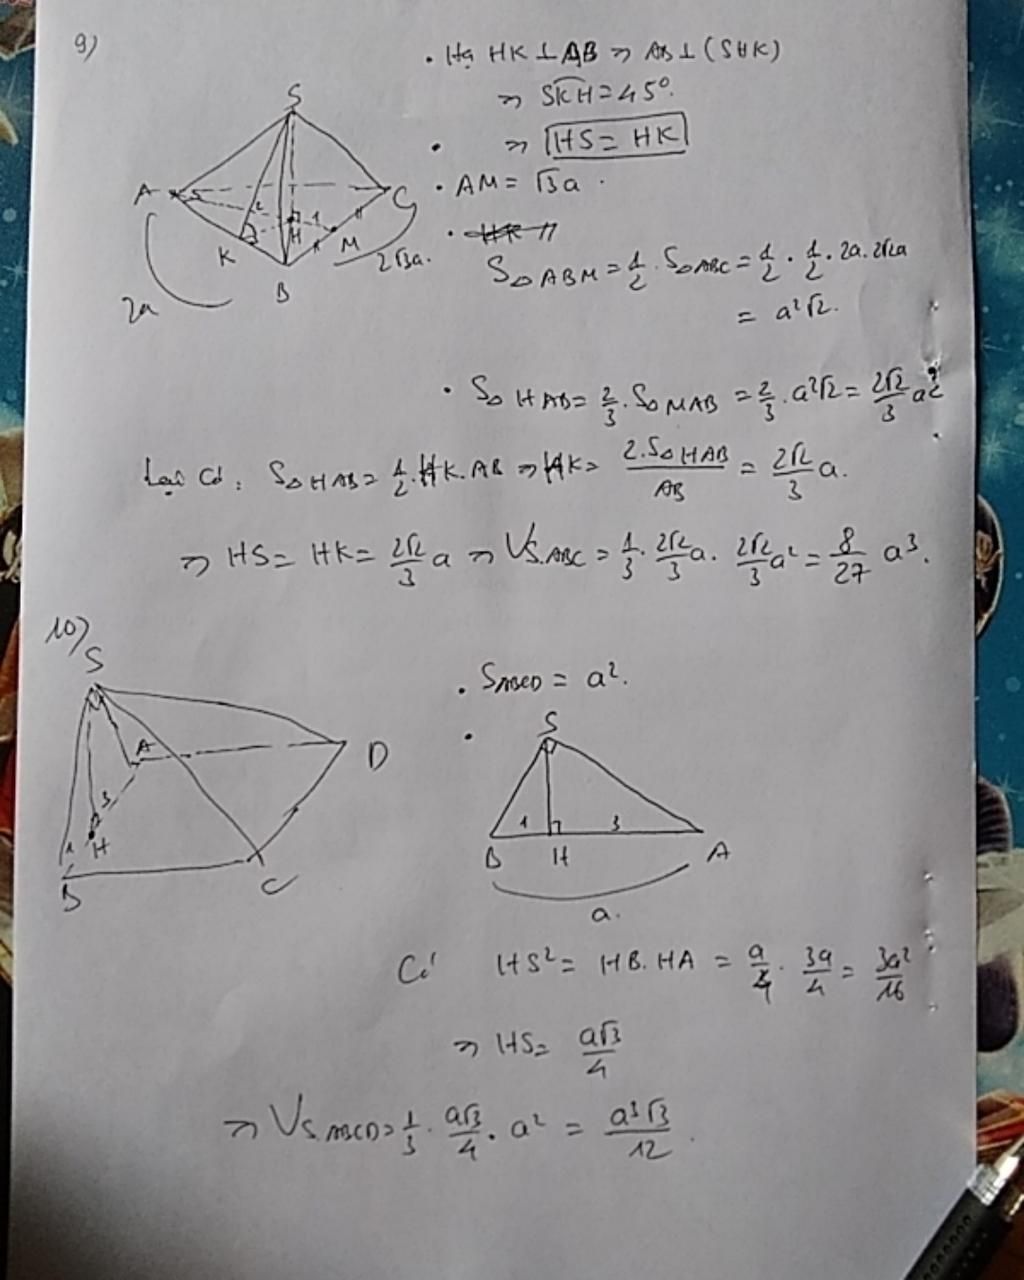 9)
. Hạ HK ⊥ AB => AB ⊥ (SHK)
=> SKH = 45°.
. => HS = HK
. AM = √3a .
S
A
C
K
H
M
B
2
1
2a
2√3a.
. HK //
SΔABM = 1/2 . SΔABC = 1/2 . 1/2 . 2a . 2√2a
= a²√2.
. SΔHAB = 2/3 . SΔMAB = 2/3 . a²√2 = 2√2/3 a²
Lại có: SΔHAB = 1/2 . HK . AB => HK = 2.SΔHAB/AB = 2√2/3 a.
=> HS = HK = 2√2/3 a => VS.ABC = 1/3 . 2√2/3 a . 2√2/3 a² = 8/27 a³.
10)
S
A
D
3
1
H
B
C
. SABCD = a².
.
S
1
3
B
H
A
a.
Có HS² = HB . HA = a/4 . 3a/4 = 3a²/16
=> HS = a√3/4
=> VS.ABCD = 1/3 . a√3/4 . a² = a³√3/12 .